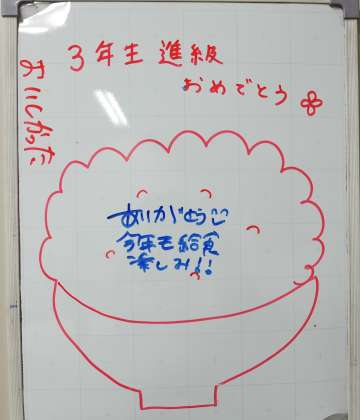 3年生 進級
おめでとう
おいしかった
ありがとう
今年も給食
楽しみ!!